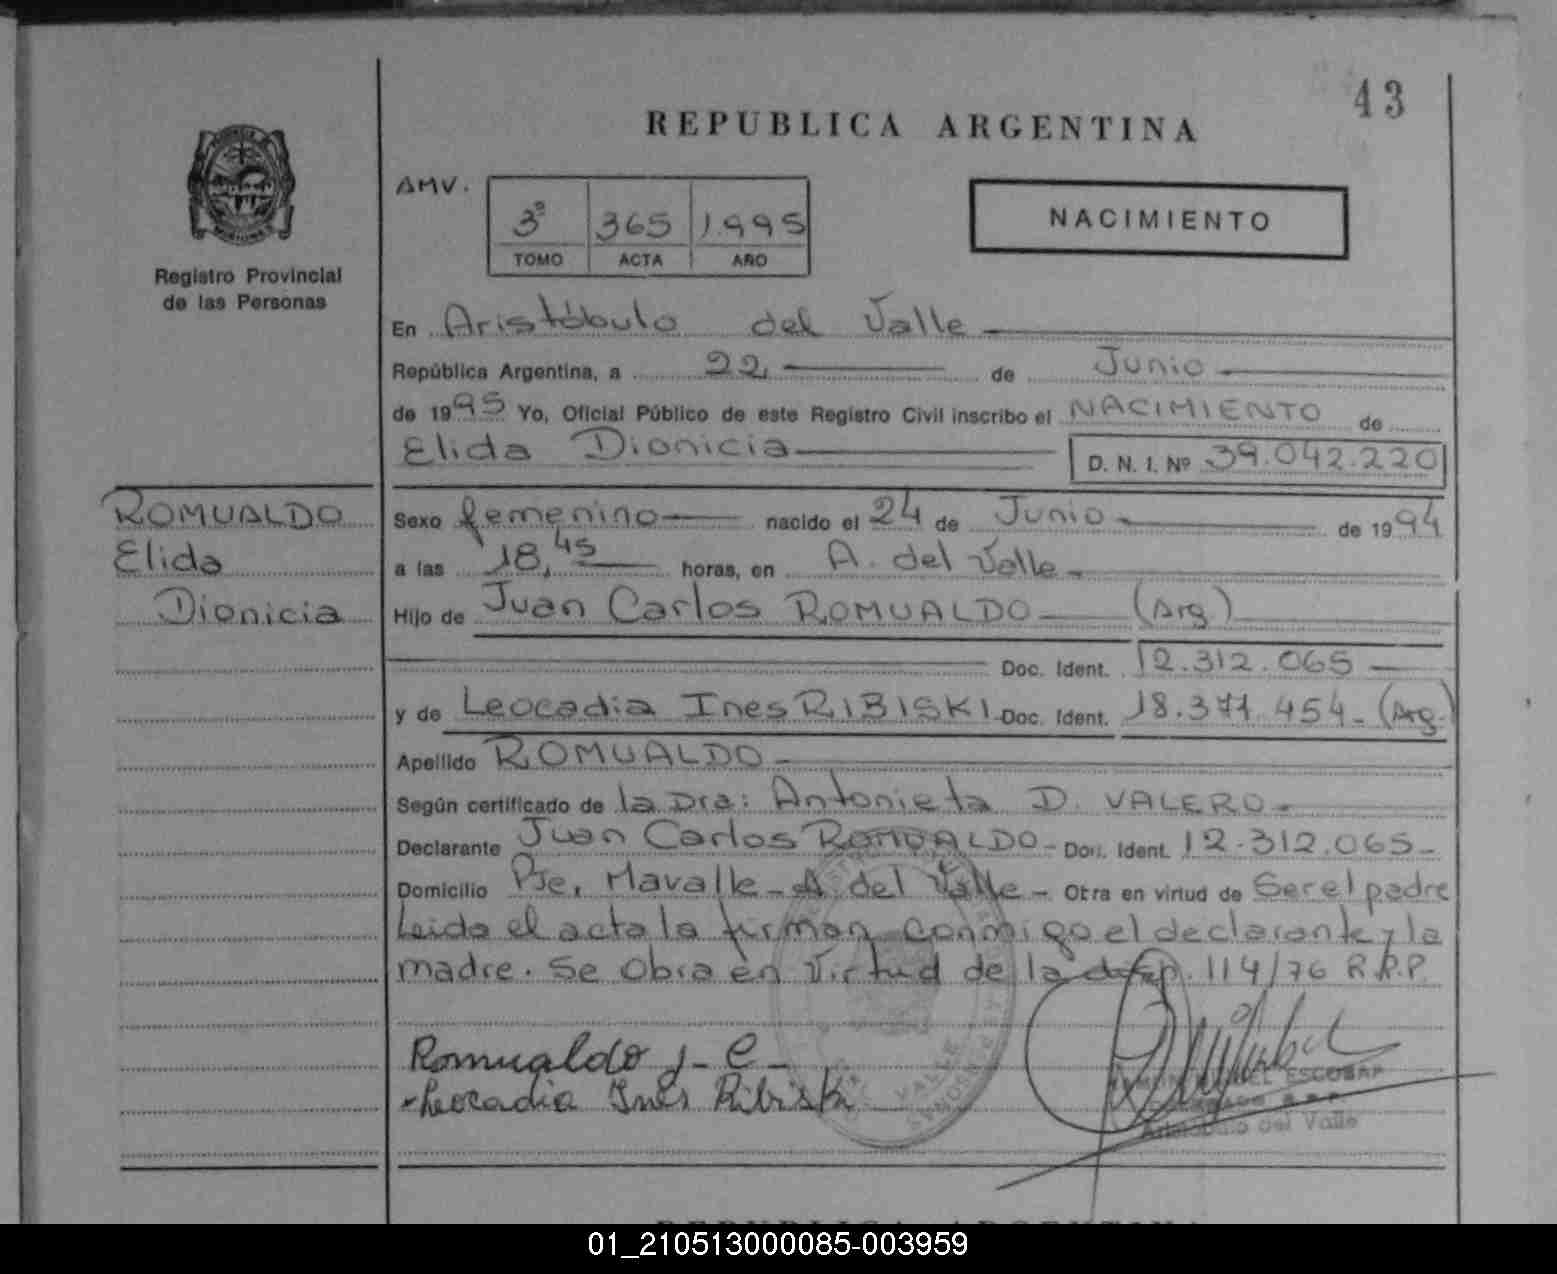 43
REPUBLICA ARGENTINA
AMV.
3º 365 1.995
TOMO ACTA AÑO
NACIMIENTO
Registro Provincial
de las Personas
En Aristóbulo del Valle
República Argentina, a 22 de Junio
de 1995 Yo, Oficial Público de este Registro Civil inscribo el NACIMIENTO de
Elida Dionicia D. N. I. Nº 39.042.220
ROMUALDO
Elida
Dionicia
Sexo femenino nacido el 24 de Junio de 1994
a las 18,45 horas, en A. del Valle
Hijo de Juan Carlos ROMUALDO (Arg)
Doc. Ident. 12.312.065
y de Leocadia Ines RIBISKI Doc. Ident. 18.377.454 - (Arg.)
Apellido ROMUALDO
Según certificado de la Dra: Antonieta D. VALERO
Declarante Juan Carlos ROMUALDO - Doc. Ident. 12.312.065 -
Domicilio Pje. Mavalle - A del Valle - Otra en virtud de Ser el padre
Leida el acta la firman conmigo el declarante y la
madre. Se Obra en Virtud de la disp. 114/76 R.P.P.
Romualdo J - C -
Leocadia Ines Ribiski
ESCOBAR
Aristóbulo del Valle
VALLE
PERSONAS
REPUBLICA ARGENTINA
01_210513000085-003959